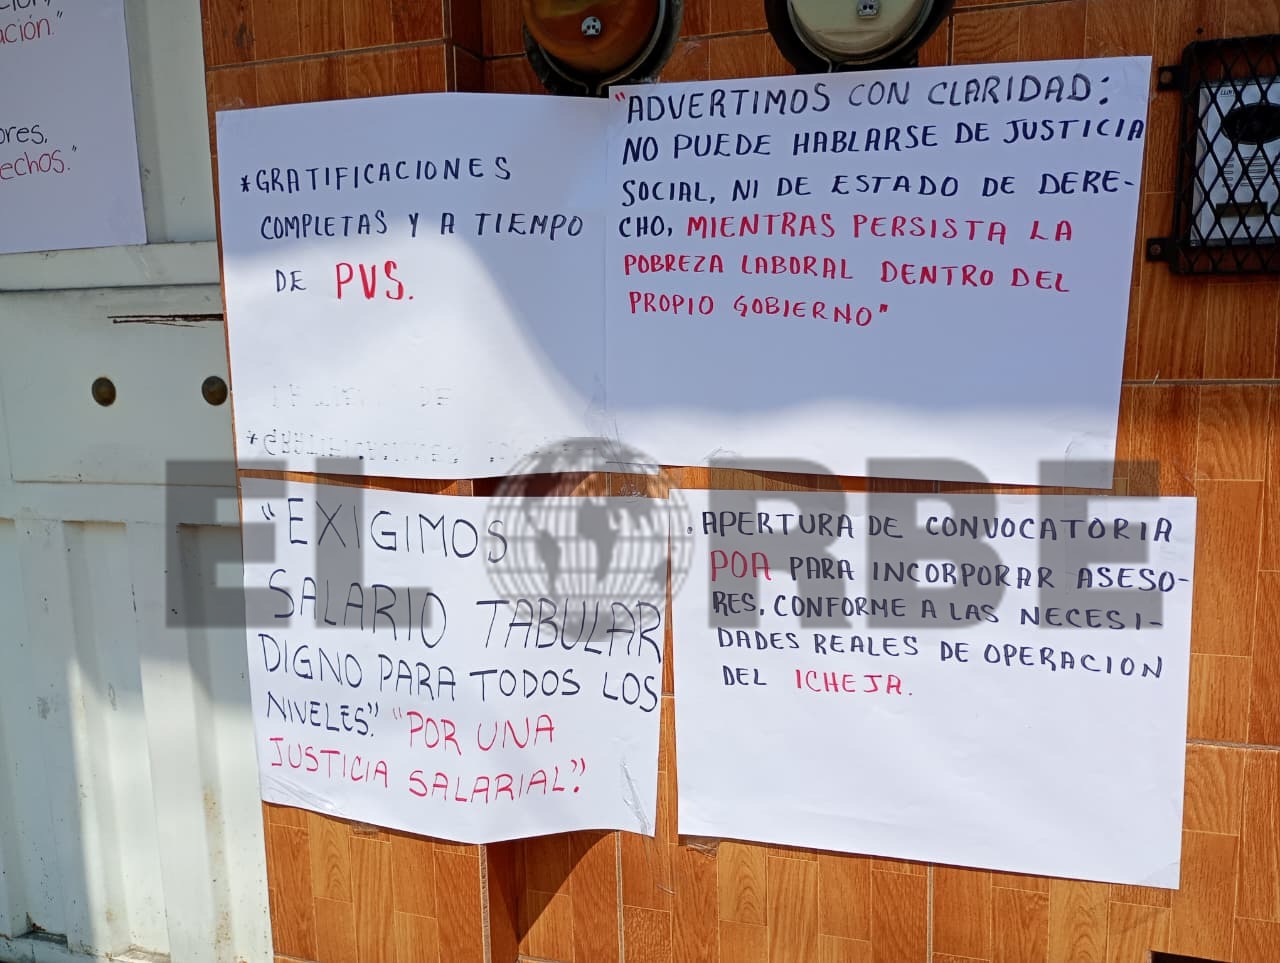 ación."
echos."
*GRATIFICACIONES
COMPLETAS Y A TIEMPO
DE PVS.
"ADVERTIMOS CON CLARIDAD:
NO PUEDE HABLARSE DE JUSTICIA
SOCIAL, NI DE ESTADO DE DERE-
CHO, MIENTRAS PERSISTA LA
POBREZA LABORAL DENTRO DEL
PROPIO GOBIERNO"
EL ORBE
"EXIGIMOS
SALARIO TABULAR
DIGNO PARA TODOS LOS
NIVELES". "POR UNA
JUSTICIA SALARIAL".
. APERTURA DE CONVOCATORIA
POA PARA INCORPORAR ASESO-
RES, CONFORME A LAS NECESI-
DADES REALES DE OPERACION
DEL ICHEJA.